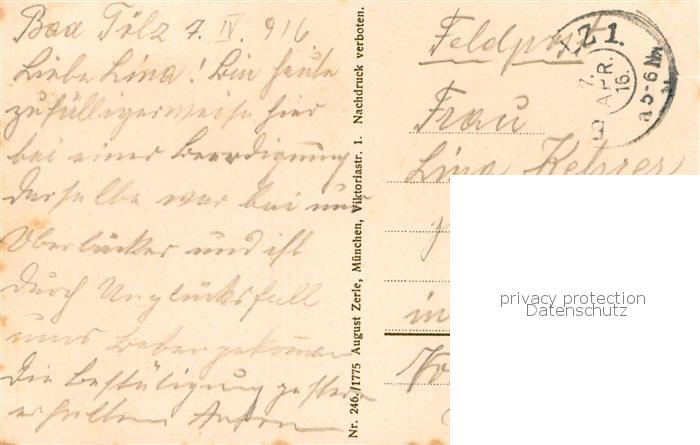 Bad Tölz 7. IV. 916
Liebe Lina! Bin heute
zufälligerweise hier
bei einer Beerdigung
derselbe war bei uns
und ist
durch Unglücksfall
ums Leben gekommen
die Bestätigung gestern
erhalten
Nr. 246./1775 August Zerle, München, Viktoriastr. 1. Nachdruck verboten.
Feldpost
Z 1.
7. APR. 16.
5-6
Frau
Lina
in
privacy protection
Datenschutz